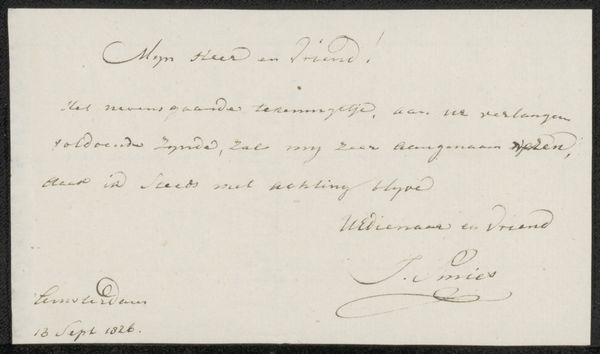 Mijn Heer en Vriend!
Het nevensgaande tekeningetje, aan uw verlangen
voldoende zynde, zal my zeer aangenaam wezen,
daar ik steeds met achting blyve
UEdienaar en Vriend
J. Smies
Amsterdam
13 Sept 1826.